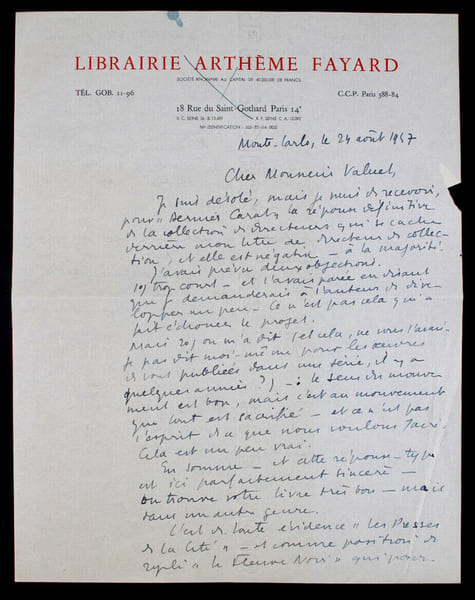 LIBRAIRIE ARTHÈME FAYARD
SOCIÉTÉ ANONYME AU CAPITAL DE 40.000.000 DE FRANCS
TÉL. GOB. 11-96
C.C.P. Paris 588-84
18 Rue du Saint-Gothard Paris 14e
R. C. SEINE
R. P. SEINE C. A.
No IDENTIFICATION
Monte-Carlo, le 24 août 1957
Cher Monsieur Valuet,
Je suis désolé, mais je viens de recevoir,
pour "Dernier Carat", la réponse définitive
de la collection de directeurs qui se cache
derrière mon titre de directeur de collec-
tion, et elle est négative - à la majorité.
J'avais prévu deux objections.
1o) trop court - et l'avais parée en disant
que je demanderais à l'auteur de déve-
lopper un peu. Ce n'est pas cela qui a
fait échouer le projet.
Mais 2o) on m'a dit (et cela, ne vous l'avais-
je pas dit moi-même pour les œuvres
publiées dans une série, il y a
quelques années ?) - : le sens du mouve-
ment est bon, mais c'est au mouvement
que tout est sacrifié - et ce n'est pas
l'esprit de ce que nous voulons faire.
Cela est un peu vrai.
En somme - et cette réponse-type
est ici parfaitement sincère -
on trouve votre livre très bon - mais
dans un autre genre.
C'est de toute évidence "les Presses
de la Cité" - et comme position de
repli "le Fleuve Noir" qui